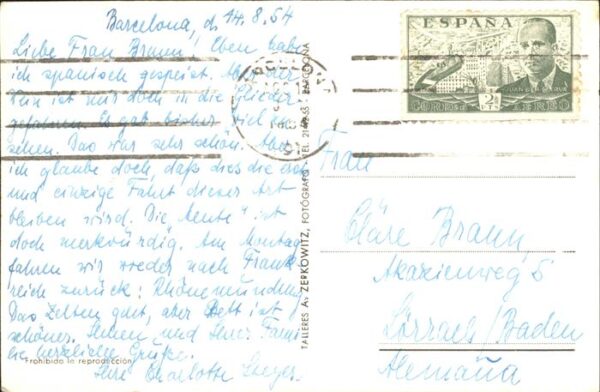 Barcelona, d. 14.8.54
Liebe Frau Braun! Eben habe
ich spanisch gespeist. Aber der
Wein ist mir doch in die Glieder
gefahren. Es gab bisher viel zu
sehen. Das war sehr schön. Aber
ich glaube doch, daß dies die
und einzige Fahrt dieser Art
bleiben wird. Die "Leute" ist
doch merkwürdig. Am Montag
fahren wir wieder nach Frank
reich zurück: Rhônemündung.
Das Zelten gut, aber Bett ist
schöner. Ihnen und Ihrer Fami
lie herzliche Grüße.
Ihre Charlotte
Prohibida la reproducción
TALLERES A. ZERKOWITZ, FOTÓGRAFO - TEL. BARCELONA
ESPAÑA
JUAN DE LA CIERVA
CORREO AEREO
2 PTS
Frau
Cläre Braun
Akazienweg 5
Lörrach/Baden
Alemaña